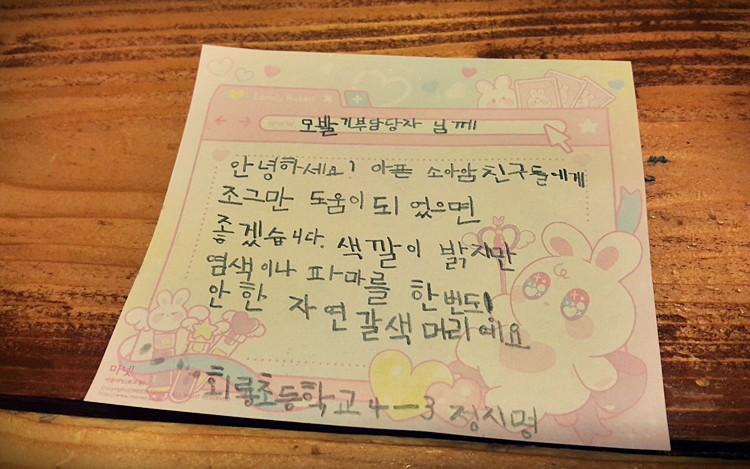 Lovely Rabbit
www.
모발기부담당자 님께
안녕하세요? 아픈 소아암 친구들에게
조그만 도움이 되었으면
좋겠습니다. 색깔이 밝지만
염색이나 파마를 한번도!
안한 자연갈색머리에요
마넷
회룡초등학교 4-3 정시명